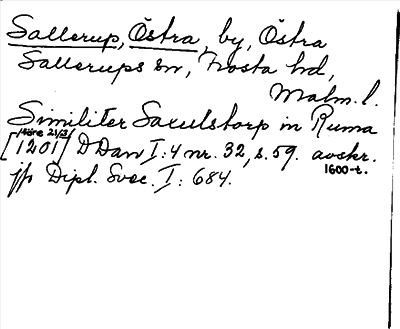 Sallerup, Östra, by, Östra
Sallerups sn, Frosta hd,
Malm. l.
Similiter Saxulstorp in Ruma
före 21/3
[1201] DDan I:4 nr. 32, s. 59. avskr.
1600-t.
jfr Dipl. Svec. I: 684.